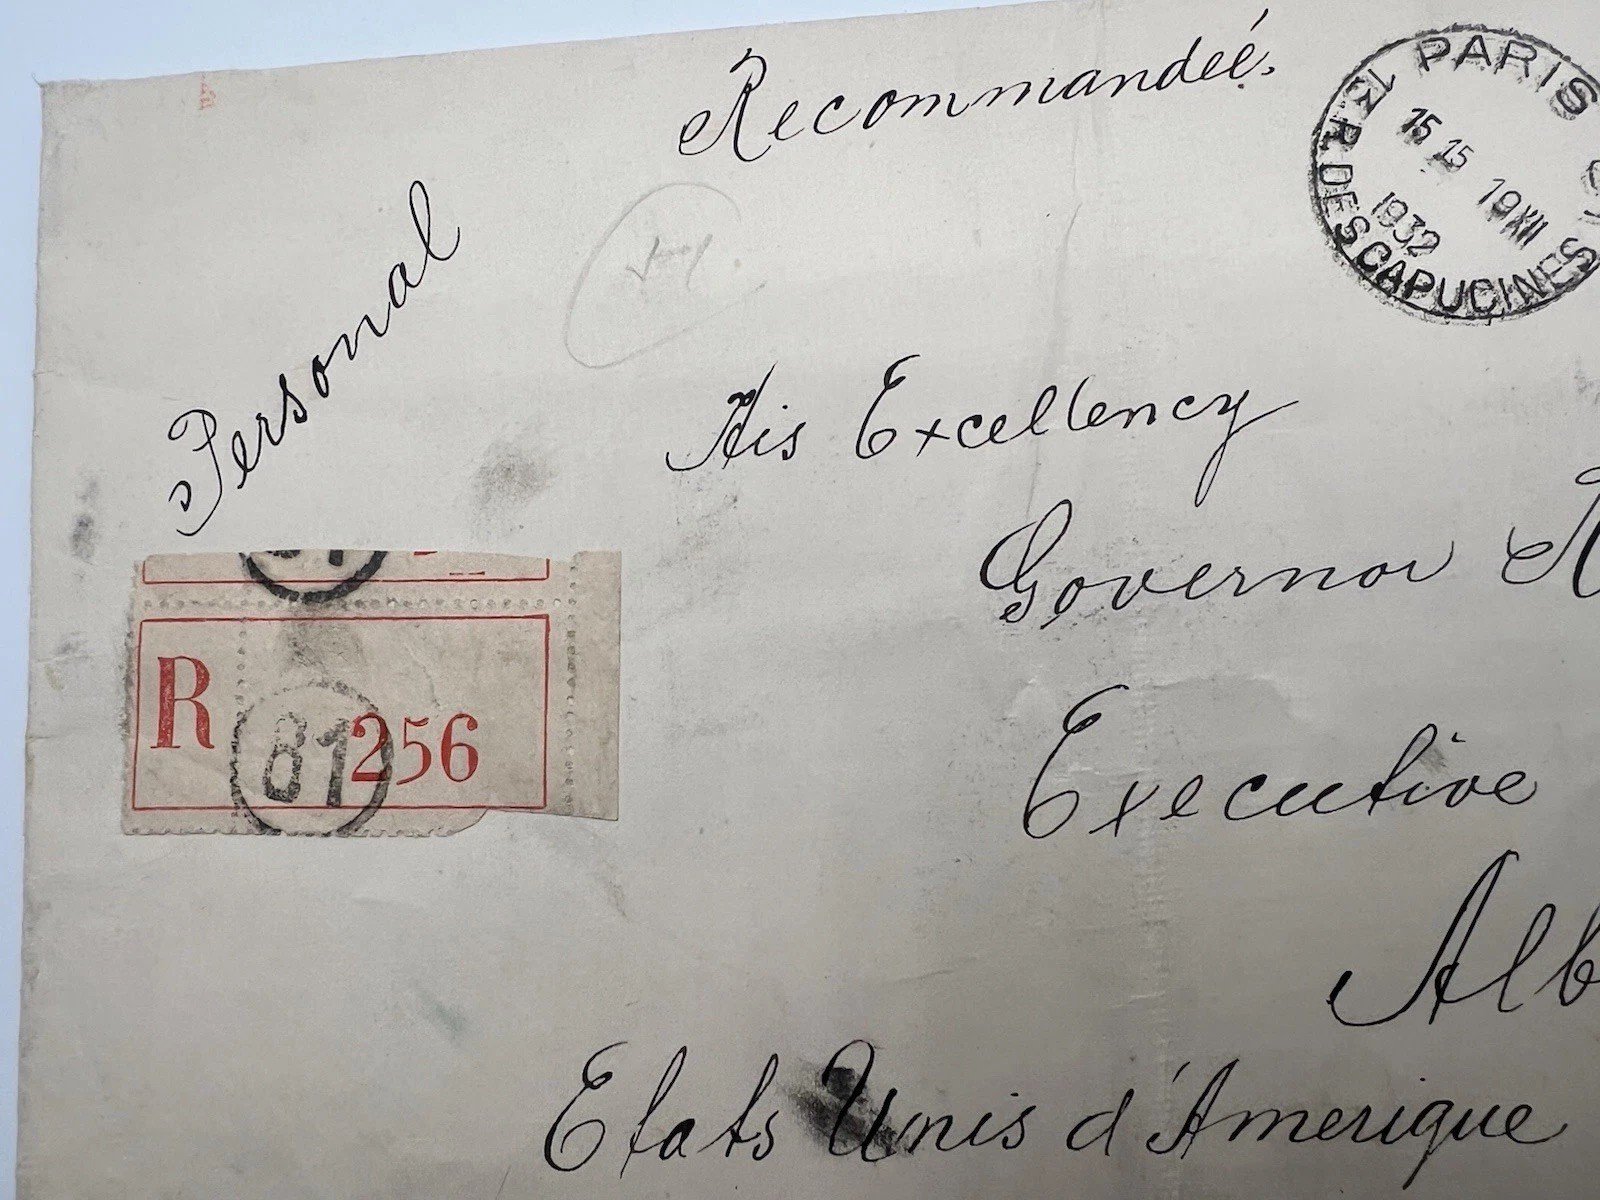 Recommandeé.
PARIS
R DES CAPUCINES
15 15
19 XII
1932
Personal
His Excellency
Governor R
Executive
Alb
Etats Unis d'Amerique
R
81
256